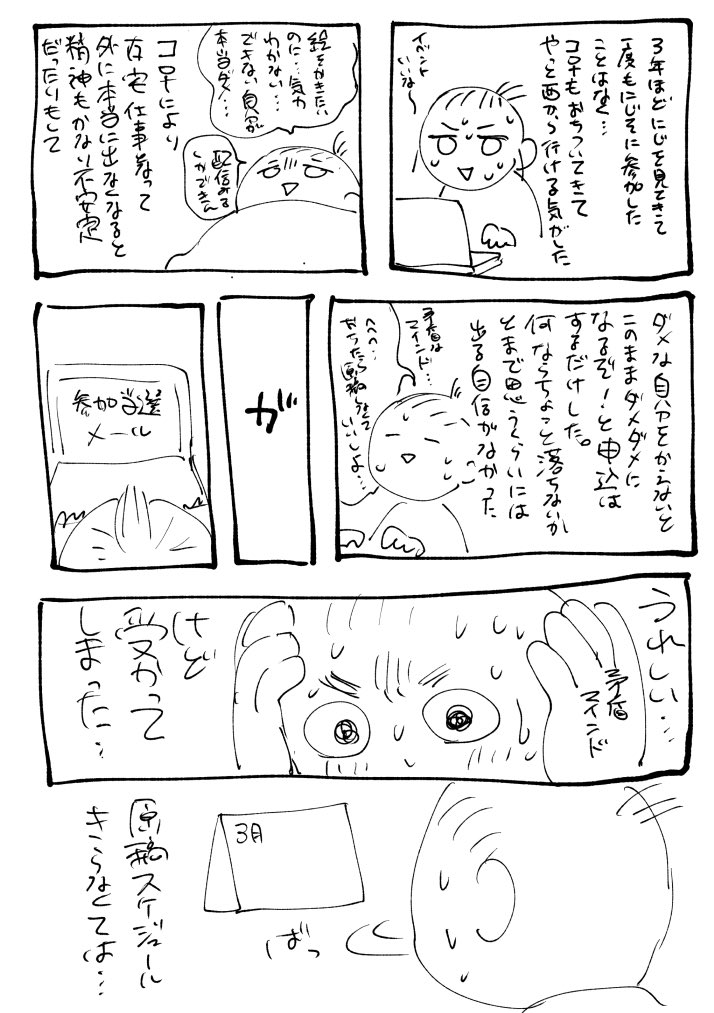 3年ほどにじを見てきて
一度もにじそに参加した
ことはなく…
コロナもおちついてきて
やっと西から行ける気がした
イベント
いいな〜
絵をかきたい
のに…気力
わかない…
できない自分
本当ダメ…
配信みる
しかできん
コロナにより
在宅仕事なって
外に本当に出なくなると
精神もかなり不安定
だったりもして
ダメな自分をかえないと
このままダメダメに
なるぞ!と申込は
するだけした。
何ならちょっと落ちないか
とまで思うくらいには
出る自信がなかった
矛盾な
マインド…
へへへ…
おちたら原稿しなくて
いいしよ…
が
参加当選
メール
うれしい…
矛盾
マインド
けど
受かって
しまった…
3月
ばっ
原稿スケジュール
きらなくては…